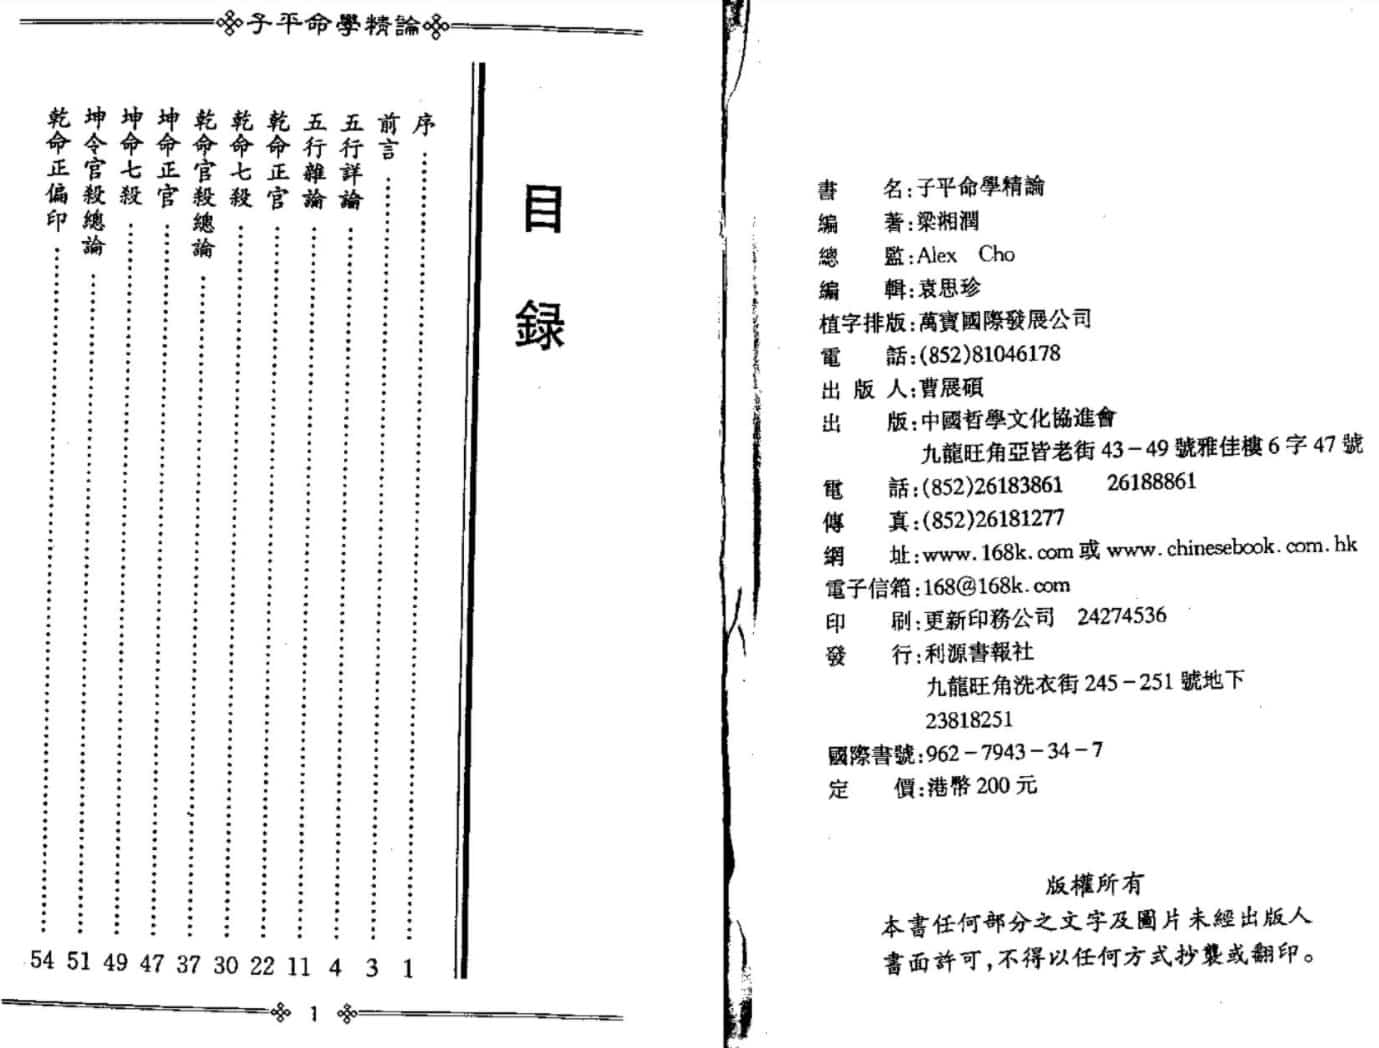 書 名:子平命學精論
編 著:梁湘潤
總 監:Alex Cho
編 輯:袁思珍
植字排版:萬寶國際發展公司
電 話:(852)81046178
出 版 人:曹展碩
出 版:中國哲學文化協進會
九龍旺角亞皆老街 43-49 號雅佳樓 6 字 47 號
電 話:(852)26183861 26188861
傳 真:(852)26181277
網 址:www.168k.com 或 www.chinesebook.com.hk
電子信箱:168@168k.com
印 刷:更新印務公司 24274536
發 行:利源書報社
九龍旺角洗衣街 245-251 號地下
23818251
國際書號:962-7943-34-7
定 價:港幣 200 元
版權所有
本書任何部分之文字及圖片未經出版人
書面許可,不得以任何方式抄襲或翻印。
子平命學精論
目錄
序 1
前言 3
五行詳論 4
五行雜論 11
乾命正官 22
乾命七殺 30
乾命官殺總論 37
坤命正官 47
坤命七殺 49
坤令官殺總論 51
乾命正偏印 54
1